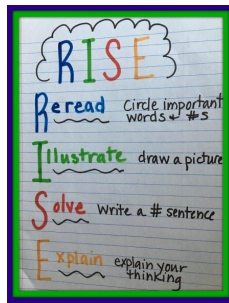 RISE
Reread Circle important
words & #s
Illustrate draw a picture
Solve Write a # sentence
Explain explain your
thinking